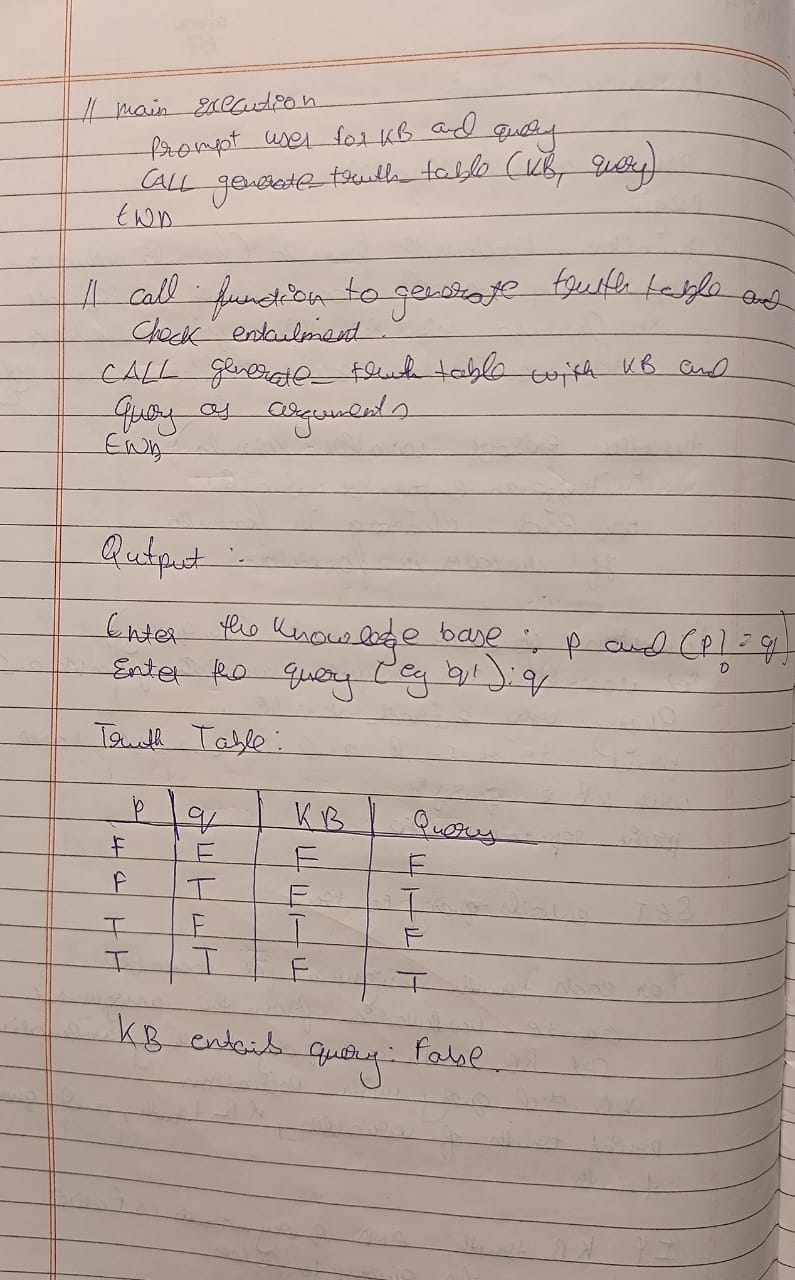 // main execution
Prompt user for KB and query
CALL generate_truth_table (KB, query)
END
// call function to generate truth table and
Check entailment.
CALL generate_truth table with KB and
Query as arguments
END
Output :-
Enter the knowledge base : p and (p != q)
Enter the query (eg 'q') : q
Truth Table:
P | q | KB | Query
F F F F
F T F T
T F T F
T T F T
KB entails query: False.